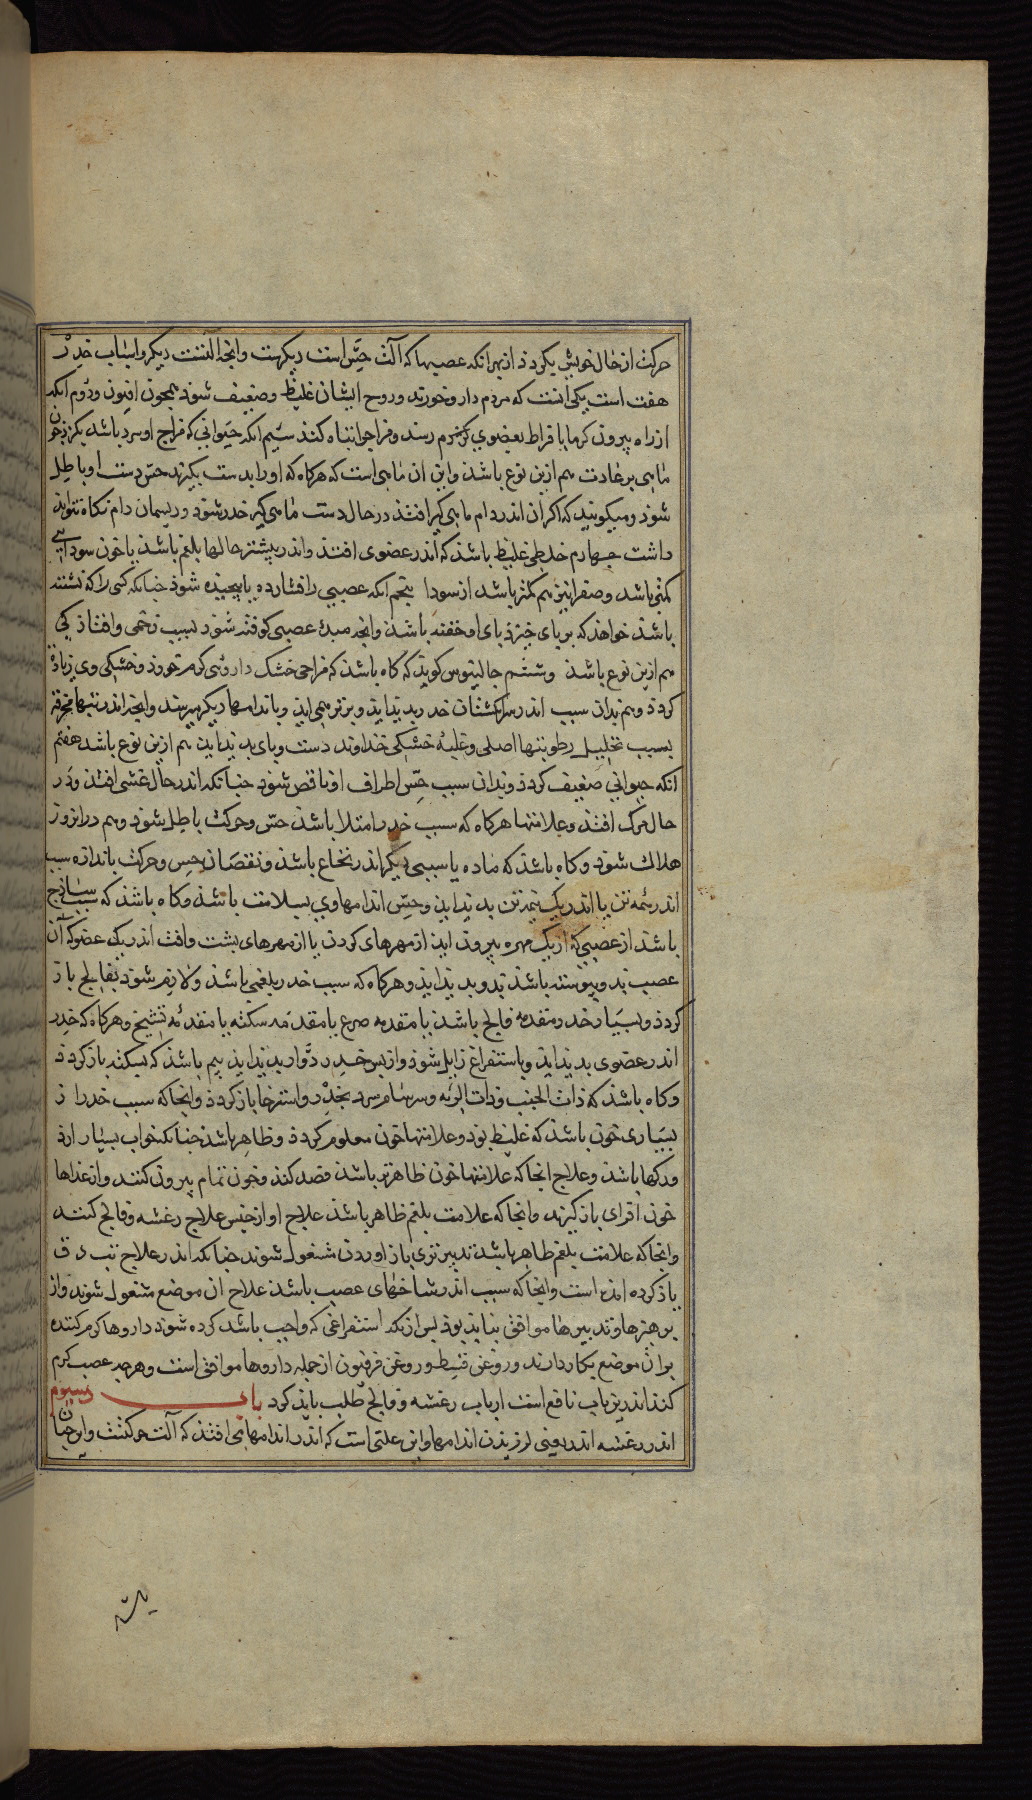 حرکت از حال خویش بکردذ از بهر انکه عصبها که آلت حسّ است دیکرست وانچه آلتست دیکر و اسباب خدر
هفت است یکی انست که مردم دارو خورند و روح ایشان غلیظ وضعیف شوذ همجون افیون ودوم انکه
از راه بیرون کرما با فراط بعضوی کرم رسد و مزاجرا تباه کند سیم انکه حیوانی که مزاج او سرد باشد بکزذ جون
ماهی بر عادت هم ازین نوع باشذ واین ان ماهی است که هرکاه که اورا بدست بکیرند حسّ دست او باطل
شوذ ومیکویند که اکر ان اندر دام ماهی کیر افتذ در حال دست ماهی کیر خدر شوذ و ریسمان دام نکاه نتواند
داشت جهارم خلطی غلیظ باشذ که اندر عضوی افتذ واندر بیشتر حالها بلغم باشذ یا خون سودایی
کمتر باشد وصفرا نیز هم کمتر باشد از سودا بنجم انکه عصبی را فشارده یا بیجیذه شوذ جنانکه کسی را که نشسته
باشذ خواهذ که بر بای خیزذ بای او خفته باشذ وانجه مبدء عصبی کوفته شوذ بسبب زخمی وافتاذکی
هم ازین نوع باشذ وششم جالینوس کویذ که کاه باشذ که مزاجی خشک داروئی کرم خورذ وخشکی وی زیادة
کردذ وهم بدان سبب اندر سر انکشتان خدر بدیذ ایذ و برتر همی ایذ و باندامهاء دیکر میرسد وانچه اندر تبهاء محرقه
بسبب تحلیل رطوبتهاء اصلی وغلبه خشکی خداوند دست وبای بدیذ ایذ هم ازین نوع باشد هفتم
انکه حیوانی ضعیف کردذ وبذان سبب حسّ اطراف او ناقص شوذ جنانکه اندر حال غشی افتذ ودر
حال مرک افتذ وعلامتها هرکاه که سبب خدر امتلا باشذ حسّ وحرکت باطل شوذ وهم در ان روز
هلاک شوذ وکاه باشذ که ماده یا سببی دیکر اندر نخاع باشذ ونقصان حس وحرکت باندازه سبب
اندر همه تن یا اندر یک نیمه تن بدیذ ایذ وحسّ اندامهاء وی بسلامت باشذ وکاه باشذ که سبب ساذج
باشذ از عصبی که از یک مهره بیرون ایذ از مهرهای کردن یا از مهرهای بشت وافت اندر یک عضو که آن
عصب بذو بیوسته باشذ بذو بدیذ ایذ وهرکاه که سبب خدر بلغمی باشذ ولازم شوذ بفالج باز
کردذ وبسیار خدر مقدمه فالج باشذ یا مقدمه صرع یا مقدمه سکته یا مقدمه تشنج وهرکاه که خدر
اندر عضوی بدیذ ایذ وباستفراغ زایل شوذ واز بس خدر دوار بدیذ ایذ بیم باشذ که بسکته باز کردذ
وکاه باشذ که ذات الجنب وذات الریه وسرسام سرد بخدر واسترخا باز کردذ وانجا که سبب خدر از
بسیاری خون باشذ که غلیظ بوذ وعلامتهاء خون معلوم کردذ وظاهر باشذ جنانکه خواب بسیار ارذ
ورکها باشذ وعلاج انجا که علامتهاء خون ظاهرتر باشذ فصد کنند وخون تمام بیرون کنند واز غذاها
خون افزای باز کیرند وانجا که علامت بلغم ظاهر باشذ علاج او از جنس علاج رعشه وفالج کنند
وانجا که علامت بلغم ظاهر باشذ تدبیر تری باز اوردن مشغول شوند جنانکه اندر علاج تب دق
یاذ کرده امذه است وانجا که سبب اندر شاخهای عصب باشذ علاج ان موضع مشغول شوند واز
برهیزها وتدبیرها موافق بباید بوذ بس از بکد استفراغی که واجب باشد کرده شوذ داروها کرم کننده
بران موضع بکار دارند وروغن قسط وروغن فرفیون از جمله داروها موافق است وهرجه عصب کرم
کند اندرین باب نافع است از باب رعشه وفالج طلب بایذ کرد باب سیوم
اندر رعشه اندر یعنی لرزیذن اندامها واین علتی است که اندر اندامهائی افتذ که آلت حرکتست واین جنان